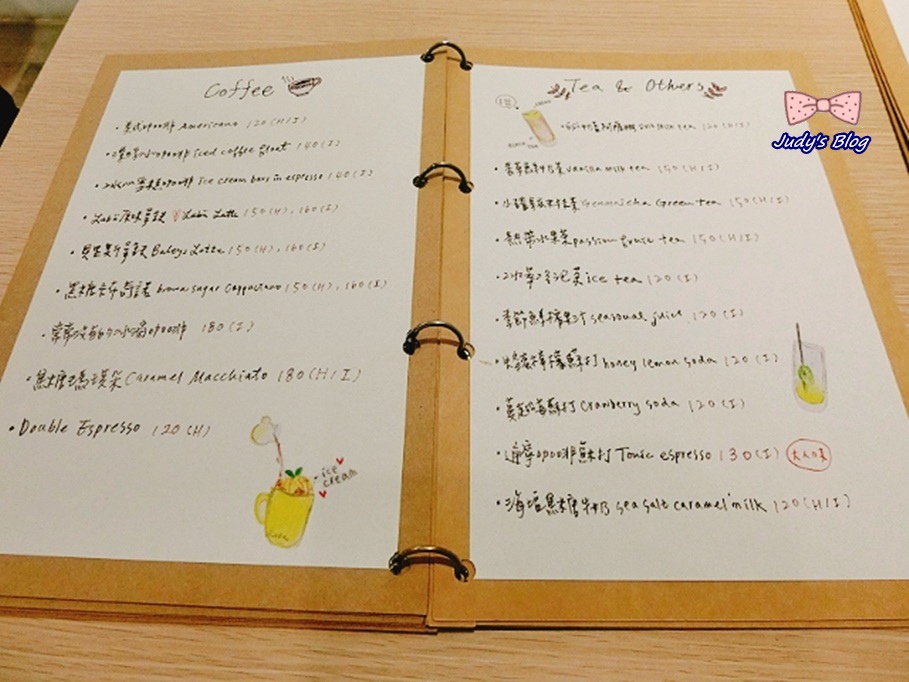 Coffee
美式咖啡 Americano 120(H/I)
漂浮冰咖啡 iced coffee float 140(I)
雪糕咖啡 ice cream bars in espresso 140(I)
原味拿鐵 Latte 150(H), 160(I)
貝里斯拿鐵 Baileys Latte 150(H), 160(I)
黑糖卡布奇諾 brown sugar Cappuccino 150(H), 160(I)
冰滴咖啡 180(I)
焦糖瑪琪朵 Caramel Macchiato 180(H/I)
Double Espresso 120(H)
ice
cream
Tea & Others
milk tea 120(H/I)
香草焦糖奶茶 vanilla milk tea 150(H/I)
Genmaicha Green tea 150(H/I)
熱帶水果茶 passion fruit tea 150(H/I)
冰華冷泡茶 ice tea 120(I)
季節鮮榨果汁 seasonal juice 120(I)
蜂蜜檸檬蘇打 honey lemon soda 120(I)
蔓越莓蘇打 Cranberry soda 120(I)
通寧咖啡蘇打 Tonic espresso 130(I) 大人口味
海塩焦糖牛奶 sea salt caramel milk 120(H/I)
Judy's Blog